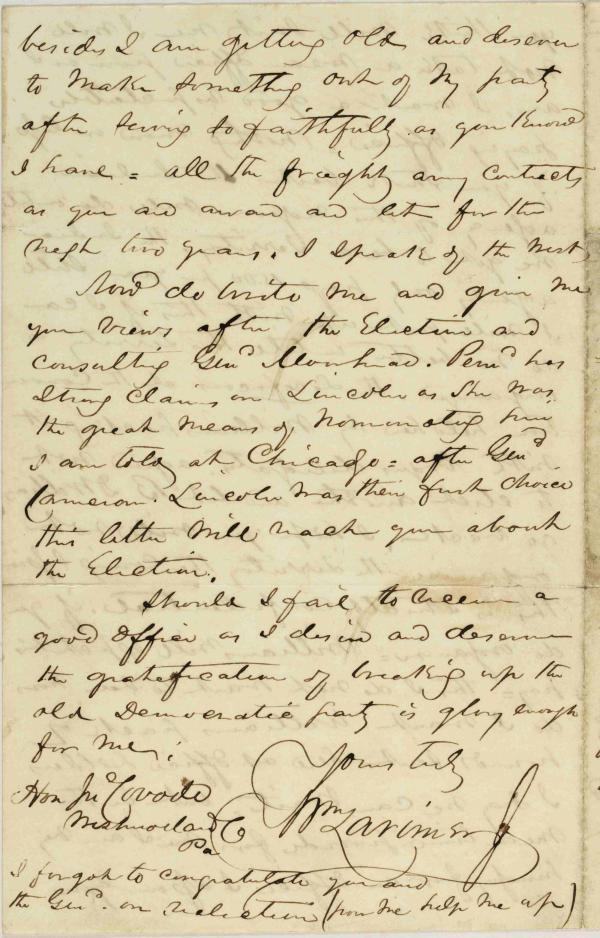 besides I am getting old and deserve
to make something out of my party
after serving so faithfully as you know
I have = all the freight army contracts
as you and award and let for the
next two years. I speak of the West
Now do write me and give me
your views after the Election and
consulting Genl Moorhead. Penna has
strong claims on Lincoln as she was
the great means of nominating him
I am told at Chicago = after Genl
Cameron. Lincoln was their first choice
this letter will reach you about
the Election.
Should I fail to receive a
good office as I desire and deserve
the gratification of breaking up the
old Democratic party is glory enough
for me.
Yours truly
Wm Larimer Jr
Hon Jno Covode
Westmoreland Co
Pa
I forgot to congratulate you and
the Genl. on reelection (now help me up)